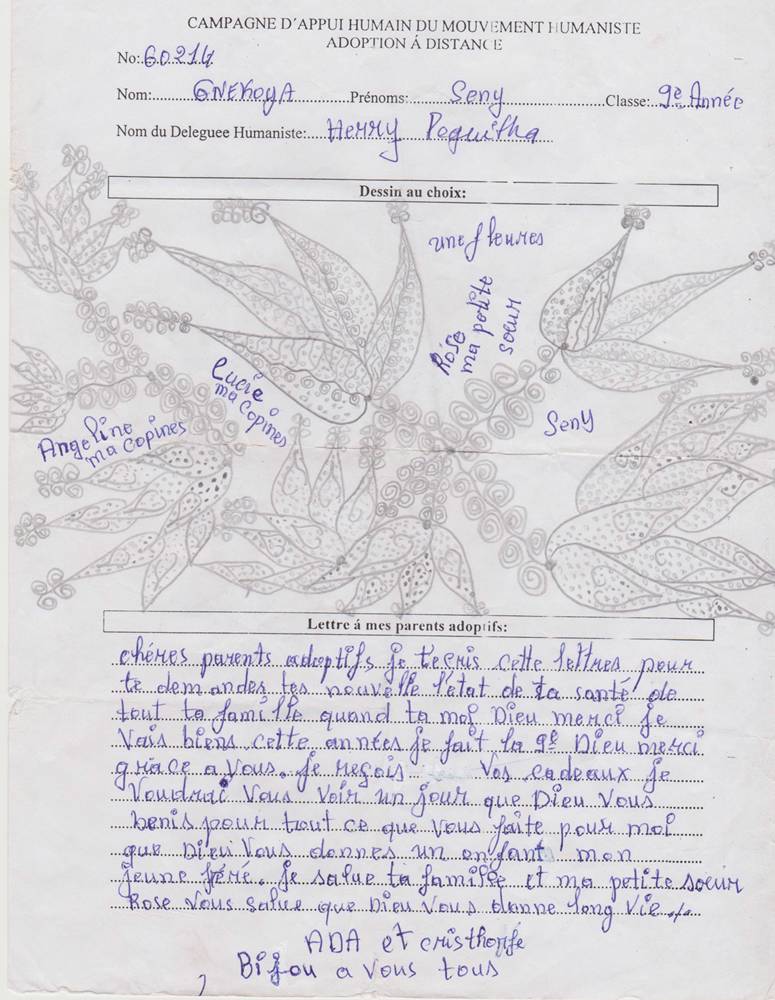 CAMPAGNE D'APPUI HUMAIN DU MOUVEMENT HUMANISTE
ADOPTION Á DISTANCE
No: 60214
Nom: GNEKOYA Prénoms: Seny Classe: 9e Année
Nom du Deleguee Humaniste: Henry Peguitha
Dessin au choix:
une fleures
Rose
ma potite
soeur
Lucie
ma copines
Angeline
ma copines
Seny
Lettre á mes parents adoptifs:
chéres parents adoptifs je t'ecris cette lettres pour
te demandes tes nouvelle l'état de ta santé de
tout ta famille quand ta moi Dieu merci je
Vais biens cette années je fait la 9e Dieu merci
grace a vous. je reçois Vos cadeaux je
Voudrai Vous Voir un jour que Dieu Vous
benis pour tout ce que Vous faite pour moi
que Dieu Vous donnes un enfant mon
jeune féré. je salue ta famille et ma potite soeur
Rose Vous salue que Dieu Vous donne long Vie
ADA et cristhophe
Bijou a Vous tous